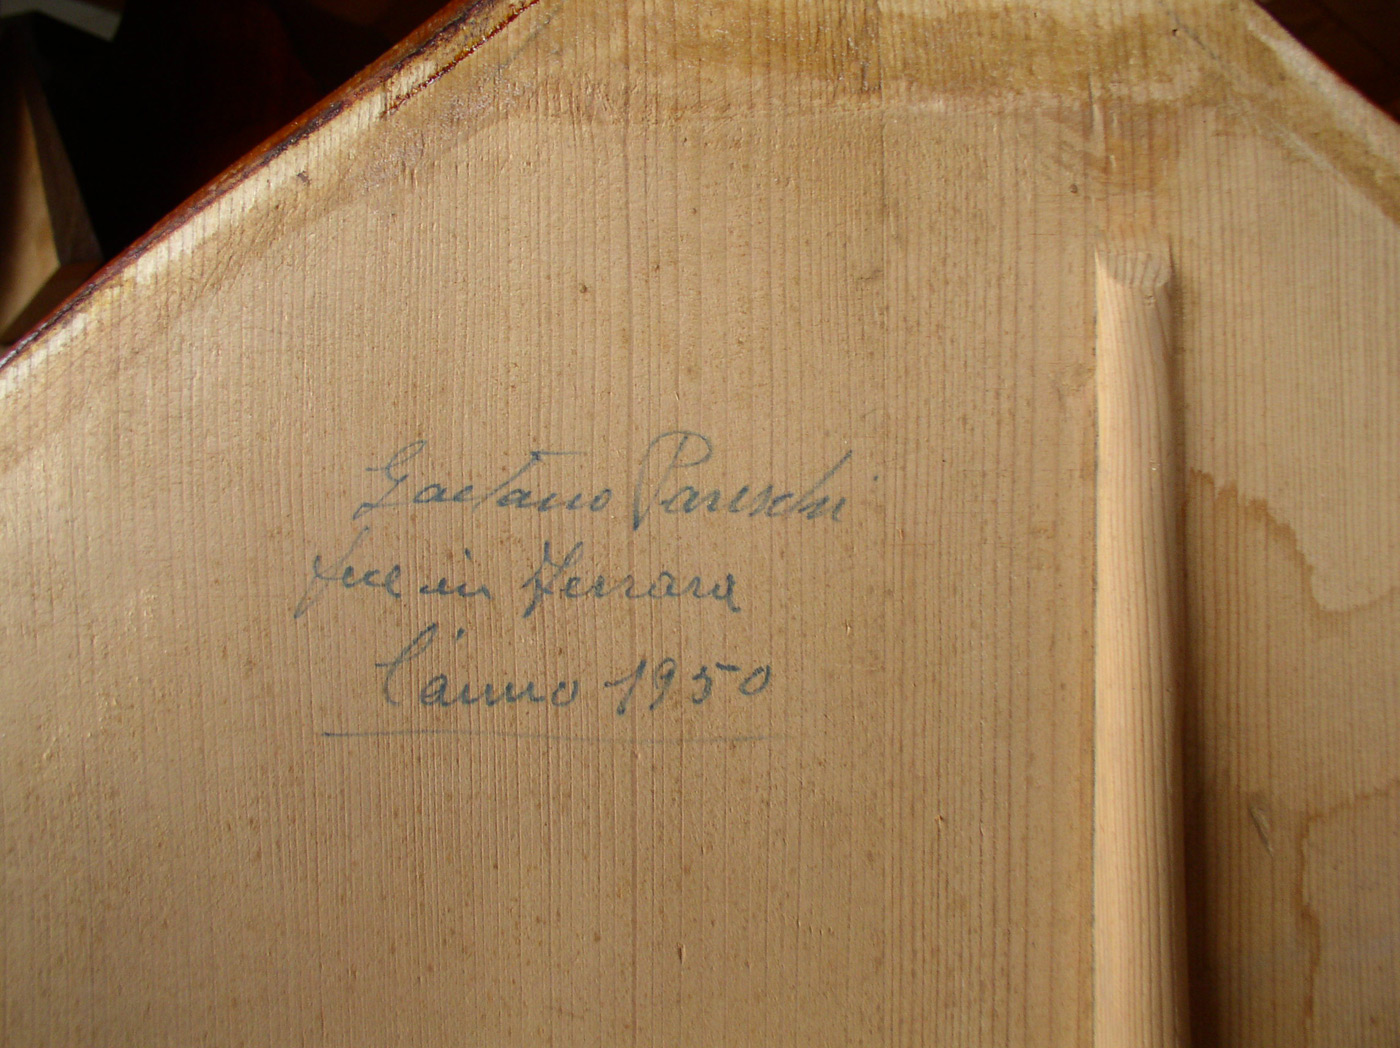 Gaetano Pareschi
fece in Ferrara
l'anno 1950